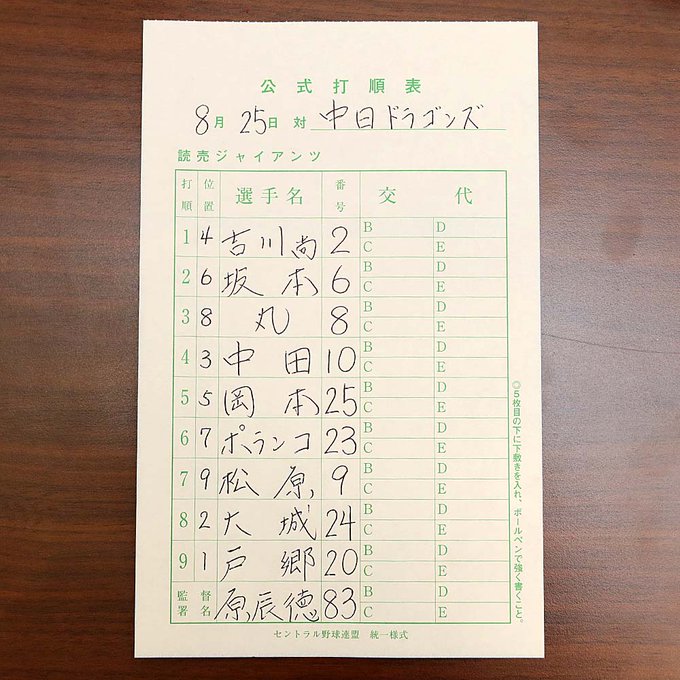 公式打順表
8月25日 対 中日ドラゴンズ
読売ジャイアンツ
打順 位置 選手名 番号 交代
1 4 吉川尚 2 B D C E
2 6 坂本 6 B D C E
3 8 丸 8 B D C E
4 3 中田 10 B D C E
5 5 岡本 25 B D C E
6 7 ポランコ 23 B D C E
7 9 松原 9 B D C E
8 2 大城 24 B D C E
9 1 戸郷 20 B D C E
監督署名 原辰徳 83 B D C E
セントラル野球連盟 統一様式
◎5枚目の下に下敷きを入れ、ボールペンで強く書くこと。